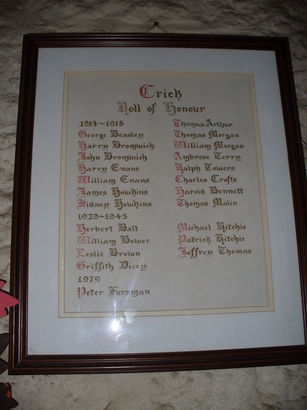 Crich
Roll of Honour
1914-1918 Thomas Arthur
George Beasley Thomas Morgan
Harry Bromwich William Morgan
John Bromwich Ambrose Terry
Harry Evans Ralph Towers
William Evans Charles Crofts
James Howkins Harold Bennett
Sidney Howkins Thomas Malin
1939-1945
Herbert Ball Michael Ritchie
William Bower Patrick Ritchie
Leslie Brown Jeffrey Thomas
Griffith Dicey
1979
Peter